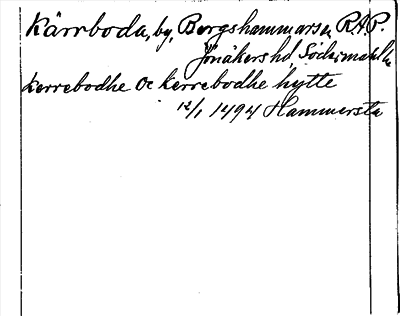 Kärrboda, by, Bergshammars sn R.A.P.
Jönåkers hd, Södermanl. län
Kerrebodhe oc Kerrebodhe hytte
12/1 1494 Hammersta